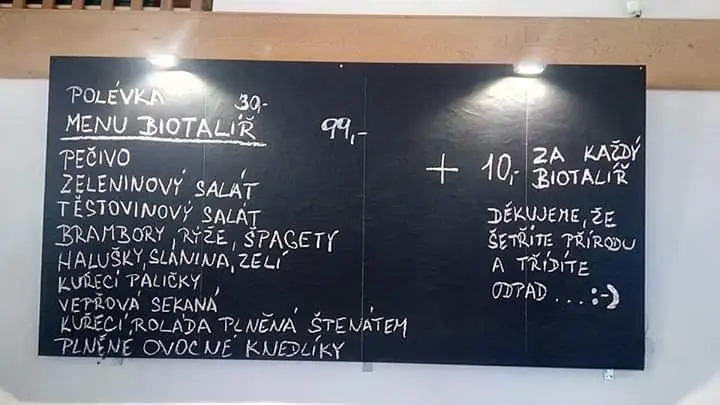 POLÉVKA 30,-
MENU BIOTALÍŘ 99,-
PEČIVO
ZELENINOVÝ SALÁT
TĚSTOVINOVÝ SALÁT
BRAMBORY, RÝŽE, ŠPAGETY
HALUŠKY, SLANINA, ZELÍ
KUŘECÍ PALIČKY
VEPŘOVÁ SEKANÁ
KUŘECÍ ROLÁDA PLNĚNÁ ŠTENÁTEM
PLNĚNÉ OVOCNÉ KNEDLÍKY
+ 10,- ZA KAŽDÝ
BIOTALÍŘ
DĚKUJEME, ŽE
ŠETŘÍTE PŘÍRODU
A TŘÍDÍTE
ODPAD...:-)